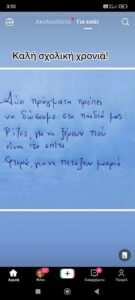 3:55
LIVE
Ακολουθείτε Για εσάς
Καλή σχολική χρονιά!
Δύο πράγματα πρέπει
να δώσουμε στα παιδιά μας:
Ρίζες, για να ξέρουν πού
είναι το σπίτι
Φτερά, για να πετάξουν μακριά
Αρχική
Φίλοι
Εισερχόμενα
Προφίλ